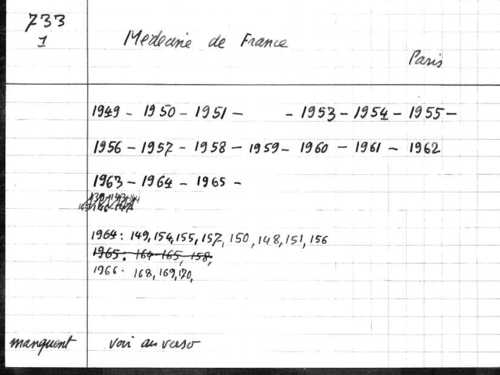 733
1
Medecine de France
Paris
1949 - 1950 - 1951 - - 1953 - 1954 - 1955 -
1956 - 1957 - 1958 - 1959 - 1960 - 1961 - 1962
1963 - 1964 - 1965 -
1964: 149, 154, 155, 157, 150, 148, 151, 156
1965: 164-165, 158,
1966. 168, 169, 170,
manquent voir au verso